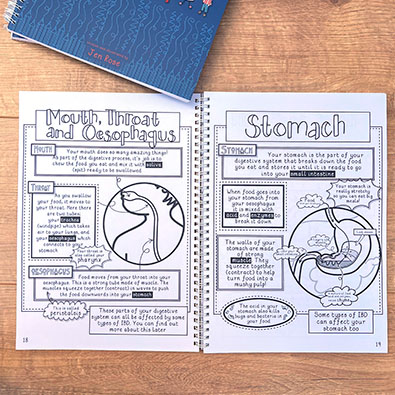 Jen Rose
Mouth, Throat
and Oesophagus
MOUTH
Your mouth does so many amazing things!
As part of the digestive process, it's job is to
chew the food you eat and mix it with saliva
(spit) ready to be swallowed.
THROAT
As you swallow
your food, it moves
to your throat. Here
there are two tubes;
your trachea
(windpipe) which takes
air to your lungs, and
your oesophagus
connects to your
stomach
Your throat is
also called your
pharynx
OESOPHAGUS
Food moves from your throat into your
oesophagus. This is a strong tube made of muscle. The
muscles squeeze together (contract) in waves to push
the food downwards into your stomach
This is called
peristalsis
These parts of your digestive
system can all be affected by some
types of IBD. You can find out
more about this later
18
Stomach
STOMACH
Your stomach is the part of your
digestive system that breaks down the food
you eat and stores it until it is ready to go
into your small intestine
When food goes
into your stomach
from your oesophagus
it is mixed with
acid and enzymes to
break it down
Your stomach is
really stretchy
so you can eat big
meals!
The walls of your
stomach are made
of strong
muscle. They
squeeze together
(contract) to help
turn food into a
mushy pulp!
The acid in your
stomach also kills
bugs and bacteria in
your food
chyme
Some types of IBD
can affect your
stomach too
19